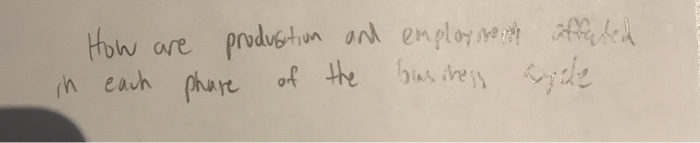 How are production and employment affected
in each phase of the business cycle